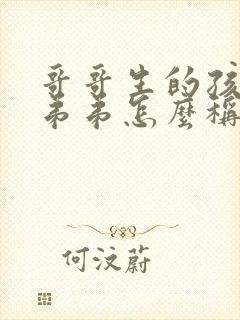 哥哥生的孩
弟弟怎麼稱
何汶蔚